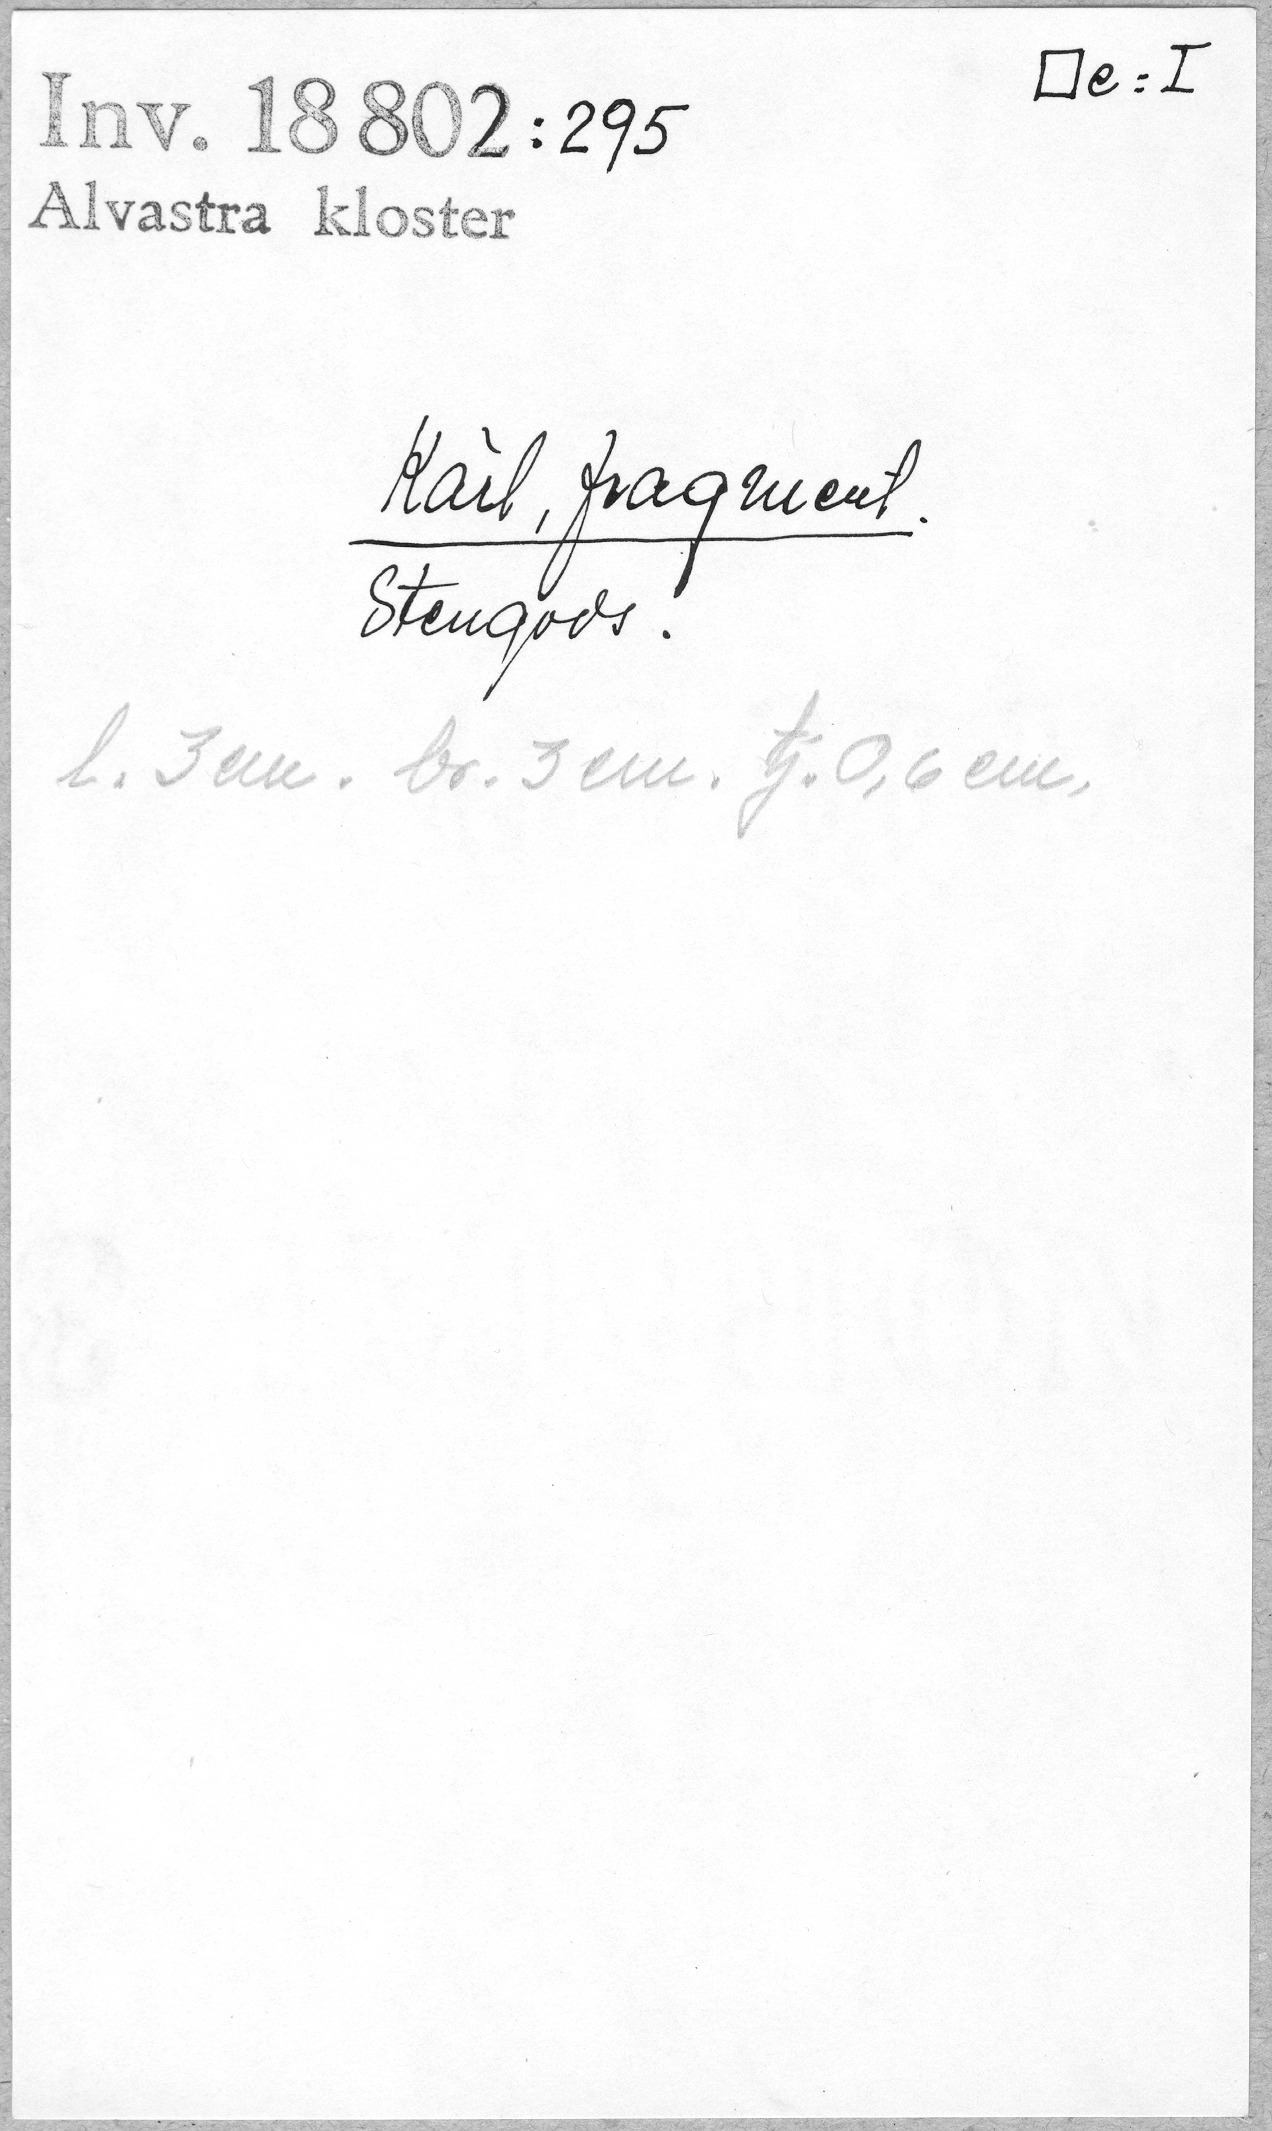 □e:I
Inv. 18 802:295
Alvastra kloster
Kärl, fragment.
Stengods.
l. 3 cm. br. 3 cm. tj. 0,6 cm.